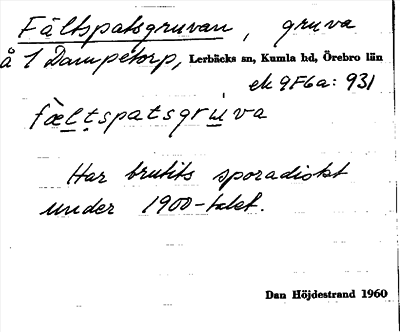 Fältspatsgruvan, gruva
å 1 Dampetorp, Lerbäcks sn, Kumla hd, Örebro län
ek 9F6a: 931
fæltspatsgruva
Har brutits sporadiskt
under 1900-talet.
Dan Höjdestrand 1960